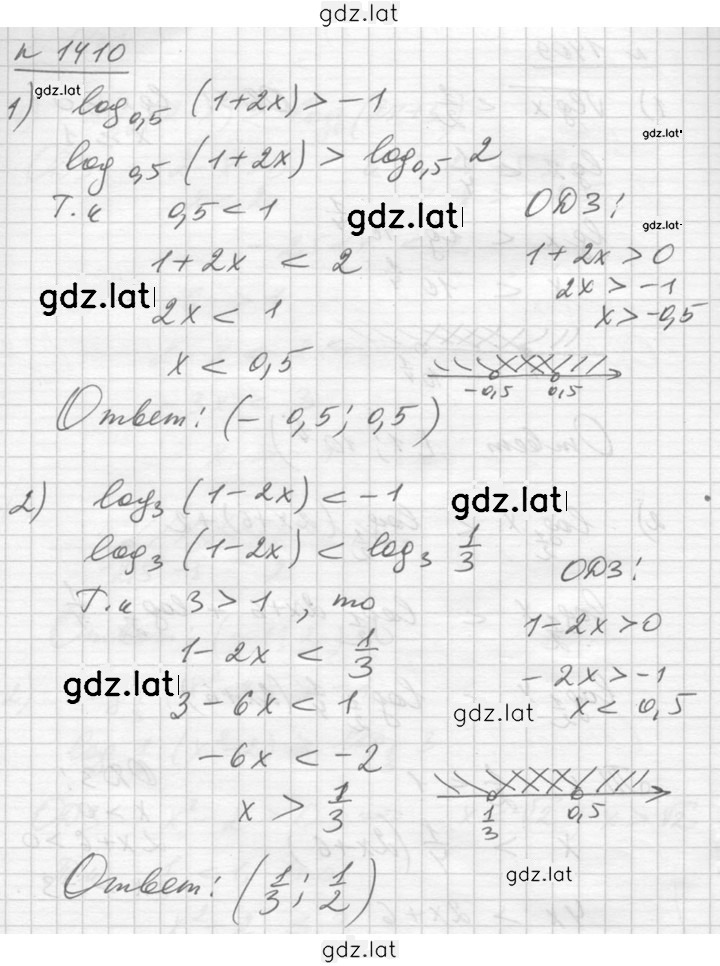 gdz.lat
n 1410
gdz.lat
1) log₀,₅ (1+2x) > -1
gdz.lat
log₀,₅ (1+2x) > log₀,₅ 2
Т.к 0,5 < 1
gdz.lat
ОДЗ:
gdz.lat
1+2x < 2
1+2x > 0
gdz.lat
2x < 1
2x > -1
x > -0,5
x < 0,5
-0,5 0,5
Ответ: (- 0,5; 0,5)
2) log₃ (1-2x) < -1
gdz.lat
log₃ (1-2x) < log₃ 1/3
ОДЗ:
Т.к 3 > 1, то
1-2x > 0
1-2x < 1/3
-2x > -1
gdz.lat
3-6x < 1
x < 0,5
gdz.lat
-6x < -2
x > 1/3
1/3 0,5
Ответ: (1/3; 1/2)
gdz.lat
gdz.lat